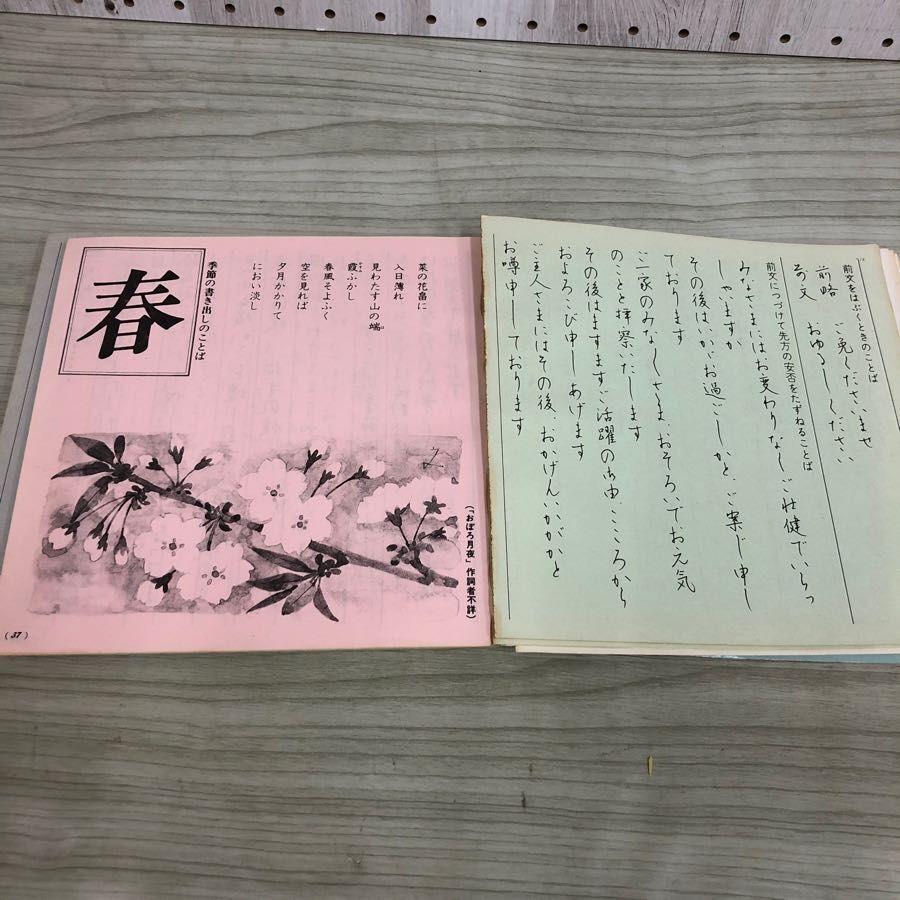 前文をはぶくときのことば
前略 ご免くださいませ
前文 おゆるしください
前文につづけて先方の安否をたずねることば
みなさまにはお変わりなくご壮健でいらっ
しゃいますか
その後はいかがお過ごしかとご案じ申し
ております
ご一家のみなみなさま、おそろいでお元気
のことと拝察いたします
その後はますますご活躍の由、こころから
およろこび申しあげます
ご主人さまにはその後、おかげんいかがかと
お噂申しております
春
季節の書き出しのことば
菜の花畠に
入日薄れ
見わたす山の端
霞ふかし
春風そよふく
空を見れば
夕月かかりて
におい淡し
(「おぼろ月夜」作詞者不詳)
(37)